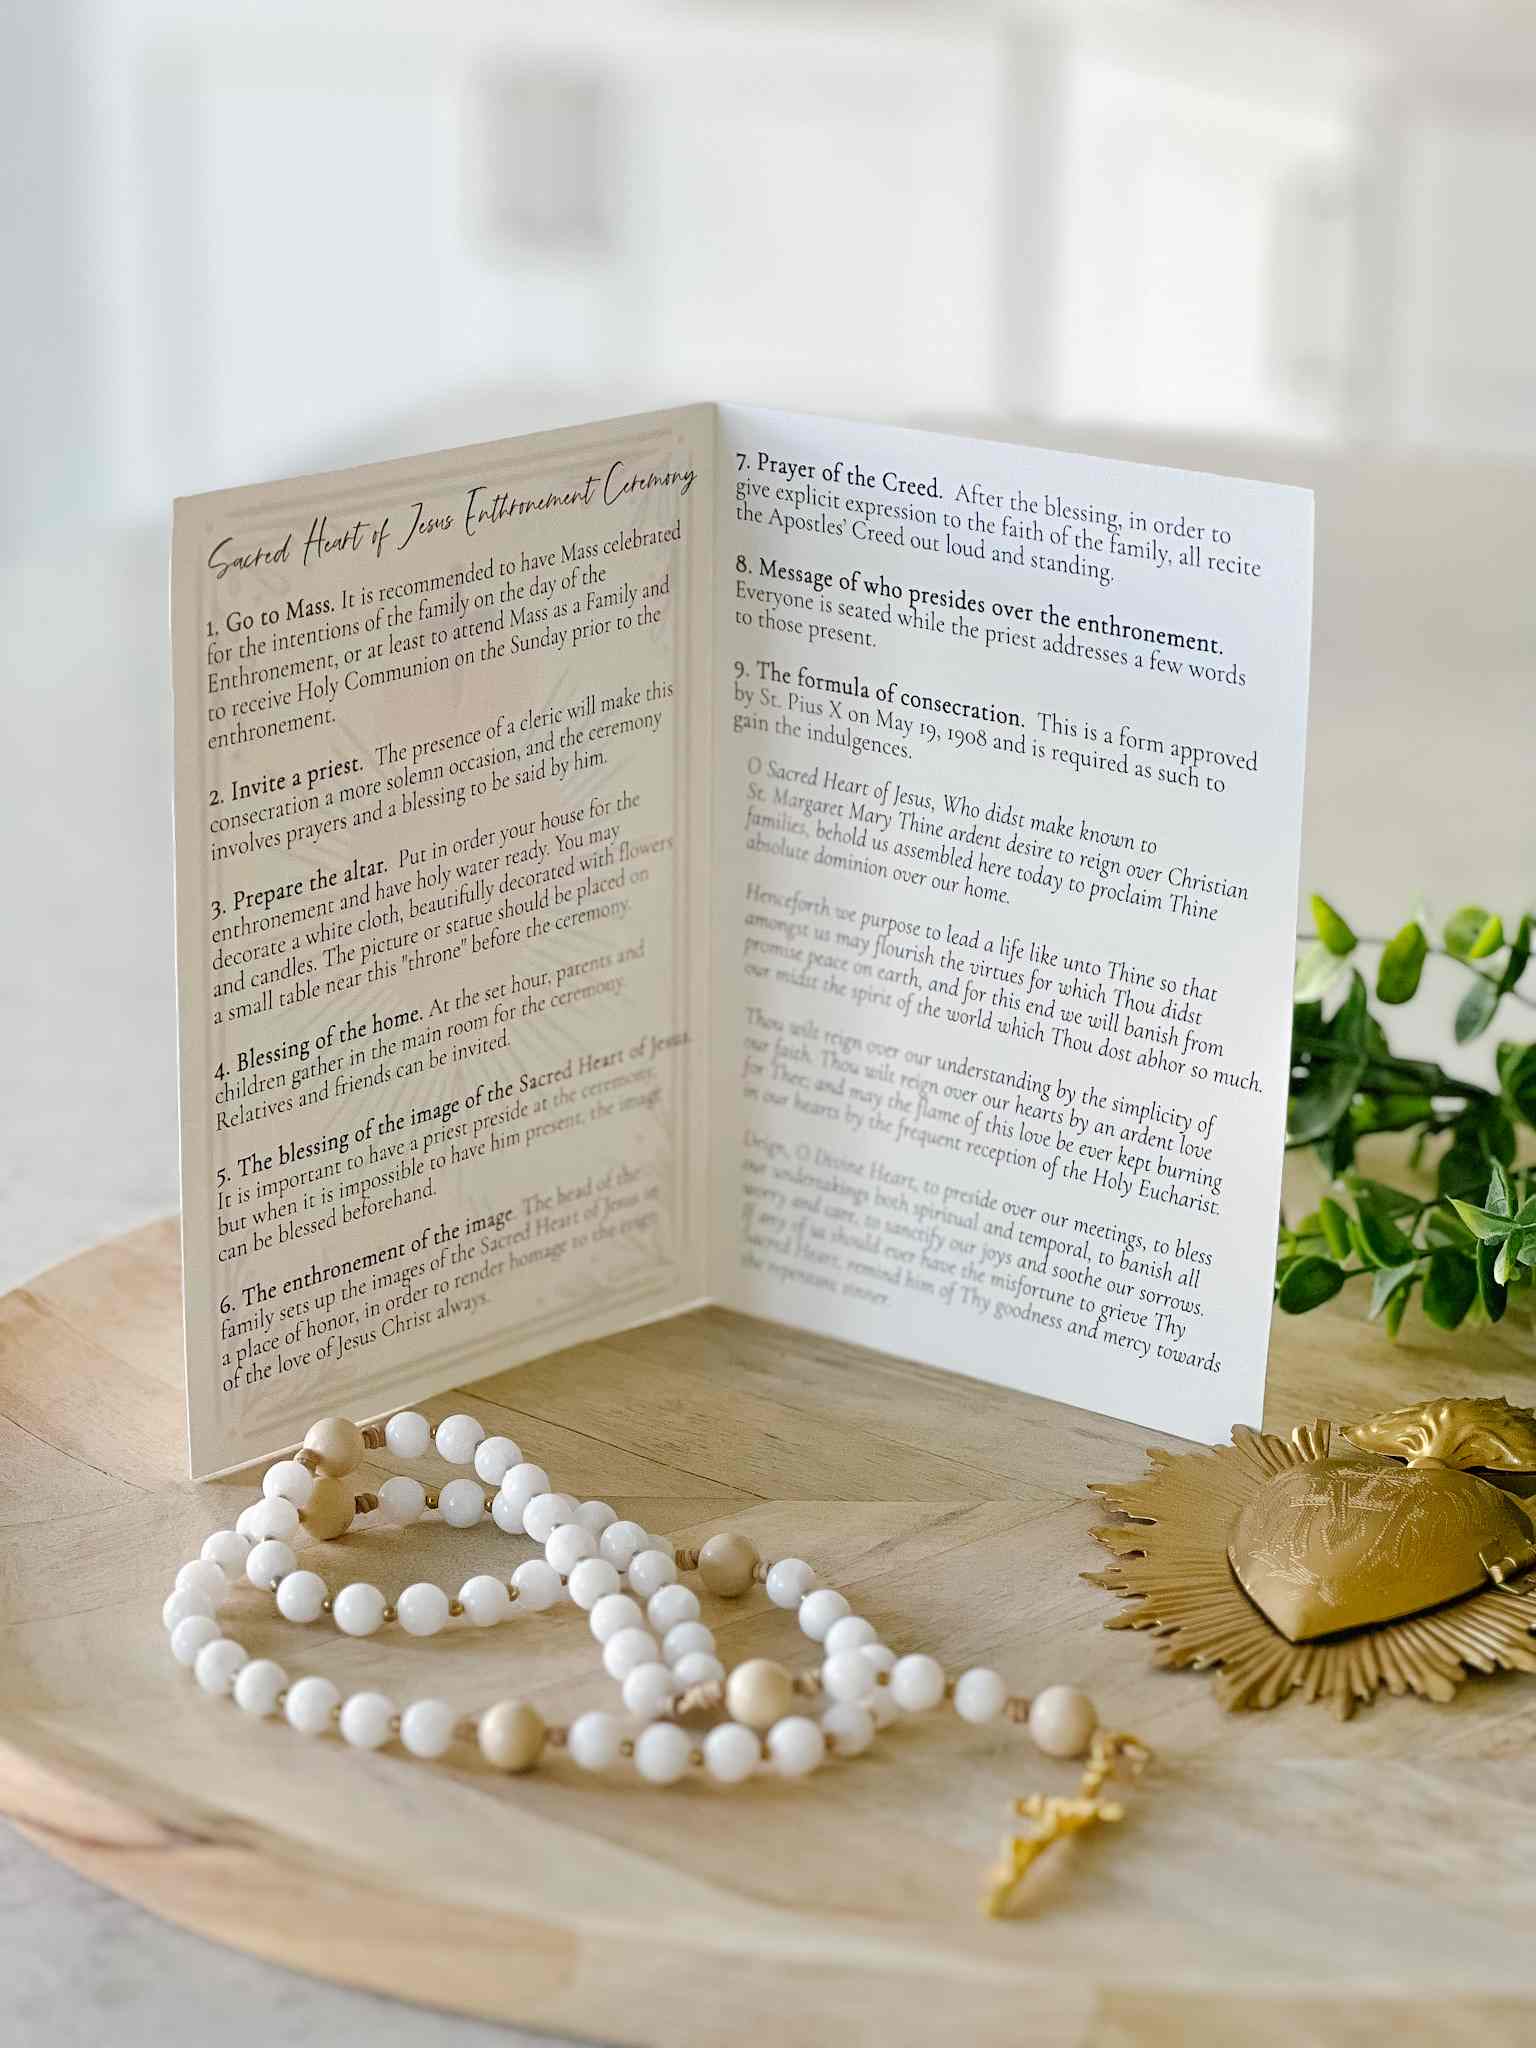 Sacred Heart of Jesus Enthronement Ceremony
1. Go to Mass. It is recommended to have Mass celebrated
for the intentions of the family on the day of the
Enthronement, or at least to attend Mass as a Family and
to receive Holy Communion on the Sunday prior to the
enthronement.
2. Invite a priest. The presence of a cleric will make this
consecration a more solemn occasion, and the ceremony
involves prayers and a blessing to be said by him.
3. Prepare the altar. Put in order your house for the
enthronement and have holy water ready. You may
decorate a white cloth, beautifully decorated with flowers
and candles. The picture or statue should be placed on
a small table near this "throne" before the ceremony.
4. Blessing of the home. At the set hour, parents and
children gather in the main room for the ceremony.
Relatives and friends can be invited.
5. The blessing of the image of the Sacred Heart of Jesus.
It is important to have a priest preside at the ceremony,
but when it is impossible to have him present, the image
can be blessed beforehand.
6. The enthronement of the image. The head of the
family sets up the images of the Sacred Heart of Jesus in
a place of honor, in order to render homage to the reign
of the love of Jesus Christ always.
7. Prayer of the Creed. After the blessing, in order to
give explicit expression to the faith of the family, all recite
the Apostles' Creed out loud and standing.
8. Message of who presides over the enthronement.
Everyone is seated while the priest addresses a few words
to those present.
9. The formula of consecration. This is a form approved
by St. Pius X on May 19, 1908 and is required as such to
gain the indulgences.
O Sacred Heart of Jesus, Who didst make known to
St. Margaret Mary Thine ardent desire to reign over Christian
families, behold us assembled here today to proclaim Thine
absolute dominion over our home.
Henceforth we purpose to lead a life like unto Thine so that
amongst us may flourish the virtues for which Thou didst
promise peace on earth, and for this end we will banish from
our midst the spirit of the world which Thou dost abhor so much.
Thou wilt reign over our understanding by the simplicity of
our faith. Thou wilt reign over our hearts by an ardent love
for Thee; and may the flame of this love be ever kept burning
in our hearts by the frequent reception of the Holy Eucharist.
Deign, O Divine Heart, to preside over our meetings, to bless
our undertakings both spiritual and temporal, to banish all
worry and care, to sanctify our joys and soothe our sorrows.
If any of us should ever have the misfortune to grieve Thy
Sacred Heart, remind him of Thy goodness and mercy towards
the repentant sinner.